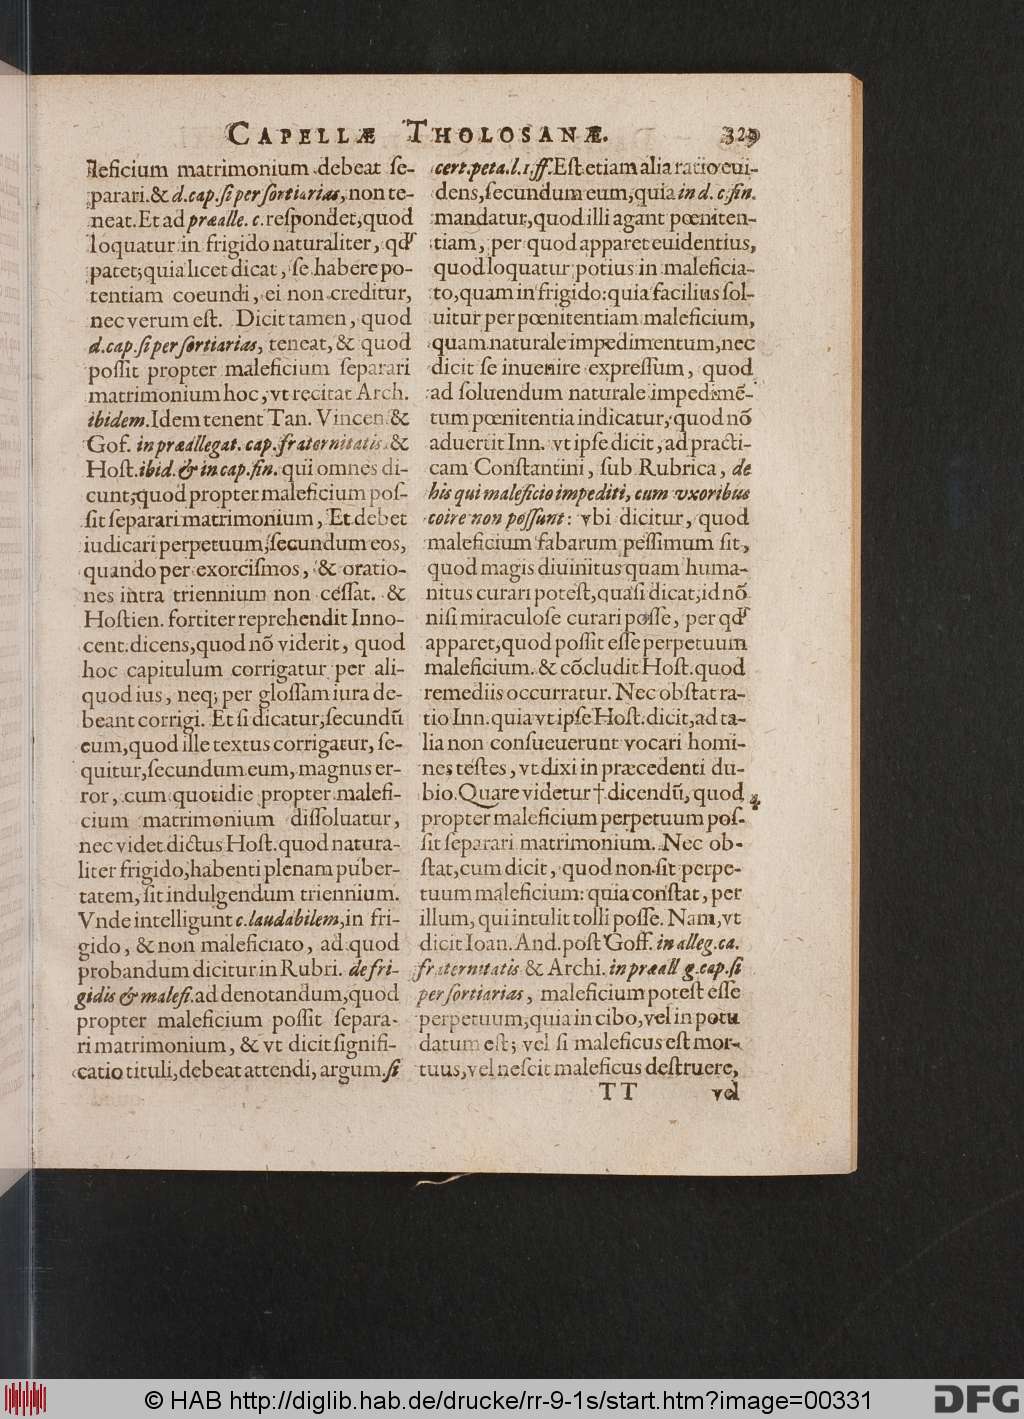 CAPELLÆ THOLOSANÆ. 329
leficium matrimonium debeat ſe-
parari. & d. cap. ſi per ſortiarias, non te-
neat. Et ad præalle. c. reſpondet, quod
loquatur in frigido naturaliter, qđ
patet; quia licet dicat, ſe habere po-
tentiam coeundi, ei non creditur,
nec verum eſt. Dicit tamen, quod
d. cap. ſi per ſortiarias, teneat, & quod
poſſit propter maleficium ſeparari
matrimonium hoc, vt recitat Arch.
ibidem. Idem tenent Tan. Vincen. &
Gof. in præallegat. cap. fraternitatis. &
Hoſt. ibid. & in cap. fin. qui omnes di-
cunt; quod propter maleficium poſ-
ſit ſeparari matrimonium, Et debet
iudicari perpetuum, ſecundum eos,
quando per exorciſmos, & oratio-
nes intra triennium non ceſſat. &
Hoſtien. fortiter reprehendit Inno-
cent. dicens, quod nō viderit, quod
hoc capitulum corrigatur per ali-
quod ius, neq; per gloſſam iura de-
beant corrigi. Et ſi dicatur, ſecundū
eum, quod ille textus corrigatur, ſe-
quitur, ſecundum eum, magnus er-
ror, cum quotidie propter malefi-
cium matrimonium diſſoluatur,
nec videt dictus Hoſt. quod natura-
liter frigido, habenti plenam puber-
tatem, ſit indulgendum triennium.
Vnde intelligunt c. laudabilem, in fri-
gido, & non maleficiato, ad quod
probandum dicitur in Rubri. de fri-
gidis & malefi. ad denotandum, quod
propter maleficium poſſit ſepara-
ri matrimonium, & vt dicit ſignifi-
catio tituli, debeat attendi, argum. ſi
cert. peta. l. 1. ff. Eſt etiam alia ratio eui-
dens, ſecundum eum, quia in d. c. fin.
mandatur, quod illi agant pœniten-
tiam, per quod apparet euidentius,
quod loquatur potius in maleficia-
to, quam in frigido: quia facilius ſol-
uitur per pœnitentiam maleficium,
quam naturale impedimentum, nec
dicit ſe inuenire expreſſum, quod
ad ſoluendum naturale impedimē-
tum pœnitentia indicatur, quod nō
aduertit Inn. vt ipſe dicit, ad practi-
cam Conſtantini, ſub Rubrica, de
his qui maleficio impediti, cum vxoribus
coire non poſſunt: vbi dicitur, quod
maleficium fabarum peſſimum ſit,
quod magis diuinitus quam huma-
nitus curari poteſt, quaſi dicat, id nō
niſi miraculoſe curari poſſe, per qđ
apparet, quod poſſit eſſe perpetuum
maleficium. & cōcludit Hoſt. quod
remediis occurratur. Nec obſtat ra-
tio Inn. quia vt ipſe Hoſt. dicit, ad ta-
lia non conſueuerunt vocari homi-
nes teſtes, vt dixi in præcedenti du-
bio. Quare videtur † dicendū, quod 4
propter maleficium perpetuum poſ-
ſit ſeparari matrimonium. Nec ob-
ſtat, cum dicit, quod non ſit perpe-
tuum maleficium: quia conſtat, per
illum, qui intulit tolli poſſe. Nam, vt
dicit Ioan. And. poſt Goff. in alleg. ca.
fraternitatis & Archi. in præall g. cap. ſi
per ſortiarias, maleficium poteſt eſſe
perpetuum, quia in cibo, vel in potu
datum eſt; vel ſi maleficus eſt mor-
tuus, vel neſcit maleficus deſtruere,
TT vel
© HAB http://diglib.hab.de/drucke/rr-9-1s/start.htm?image=00331 DFG